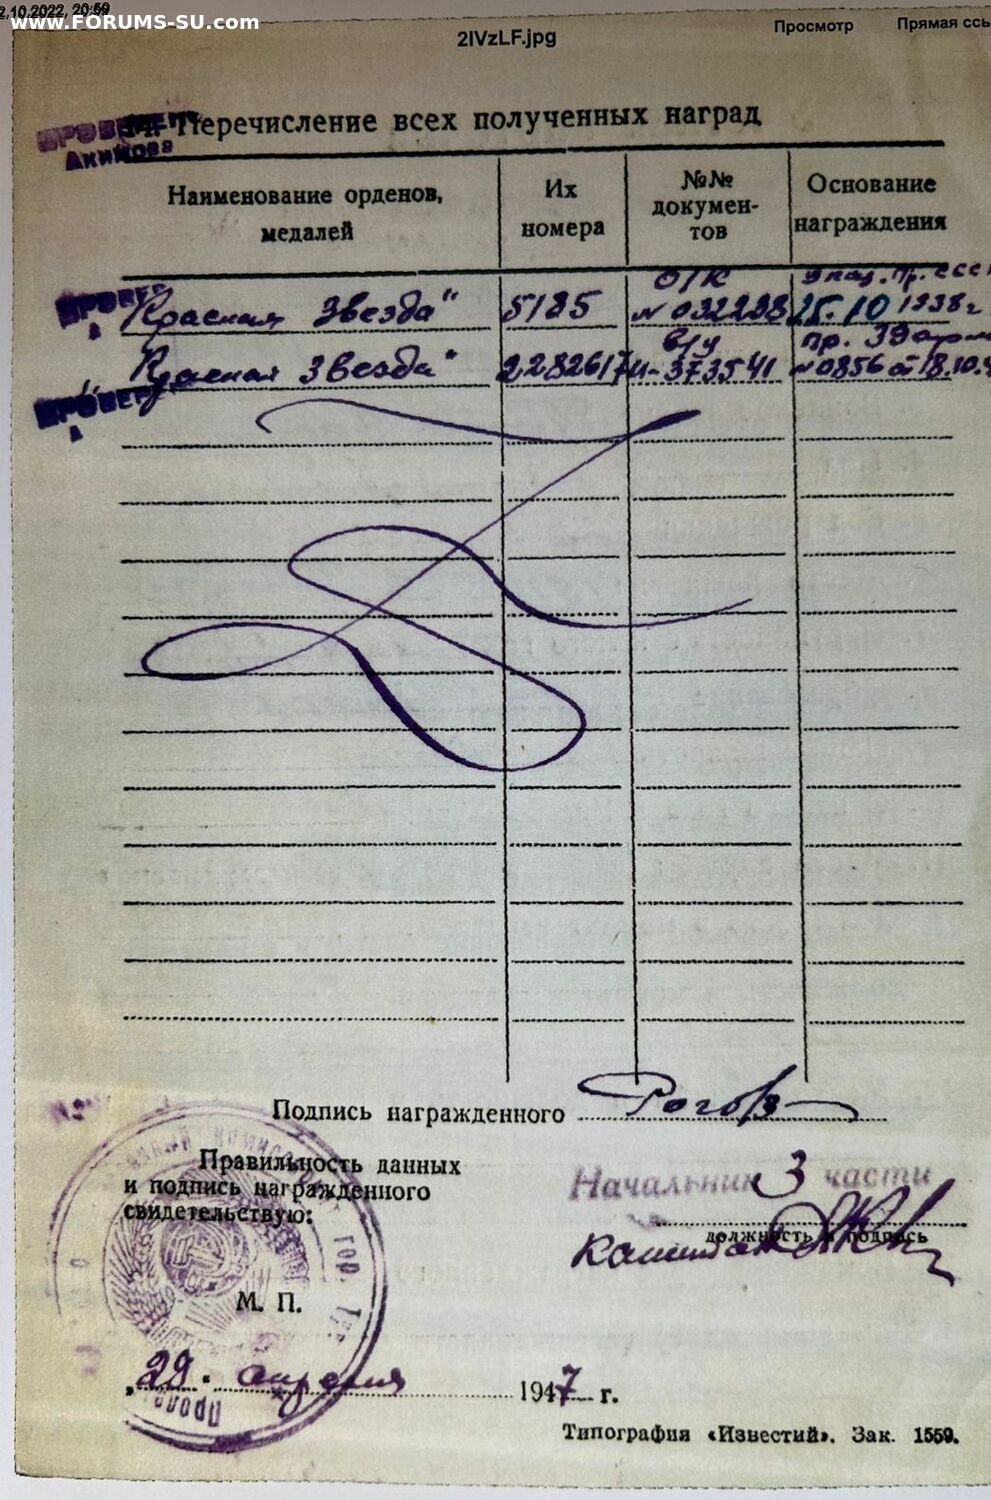 2.10.2022, 20:59
www.FORUMS-SU.com
2IVzLF.jpg
Просмотр
Прямая ссы
Перечисление всех полученных наград
Акимова
Наименование орденов, медалей
Их номера
№№ докумен-тов
Основание награждения
О/К Указ. Пр. ССС
Красная Звезда" 5185 № 032238 25.10 1938 г
в/у Пр.
"Красная Звезда" 2282617 И-373541 №0856 от 18.10.4
Подпись награжденного Рогов
Правильность данных
и подпись награжденного
свидетельствую:
Начальник 3 части
должность и подпись
Капитан
М. П.
„29" апреля 1947 г.
Типография «Известий». Зак. 1559.